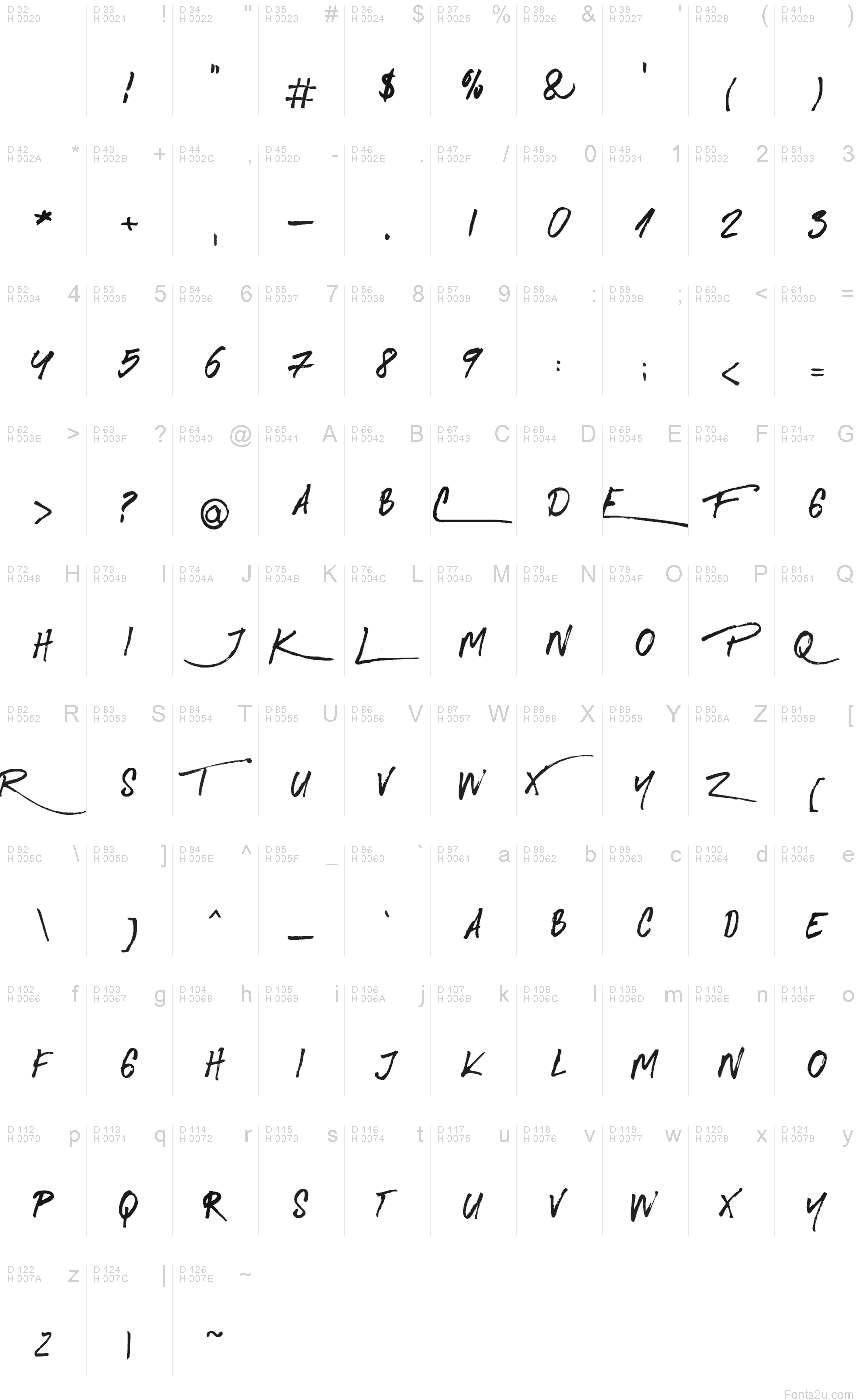 D 32 D 33 ! D 34 " D 35 # D 36 $ D 37 % D 38 & D 39 ' D 40 ( D 41 )
H 0020 H 0021 H 0022 H 0023 H 0024 H 0025 H 0026 H 0027 H 0028 H 0029
! " # $ % & ' ( )
D 42 * D 43 + D 44 , D 45 - D 46 . D 47 / D 48 0 D 49 1 D 50 2 D 51 3
H 002A H 002B H 002C H 002D H 002E H 002F H 0030 H 0031 H 0032 H 0033
* + , - . / 0 1 2 3
D 52 4 D 53 5 D 54 6 D 55 7 D 56 8 D 57 9 D 58 : D 59 ; D 60 < D 61 =
H 0034 H 0035 H 0036 H 0037 H 0038 H 0039 H 003A H 003B H 003C H 003D
4 5 6 7 8 9 : ; < =
D 62 > D 63 ? D 64 @ D 65 A D 66 B D 67 C D 68 D D 69 E D 70 F D 71 G
H 003E H 003F H 0040 H 0041 H 0042 H 0043 H 0044 H 0045 H 0046 H 0047
> ? @ A B C D E F G
D 72 H D 73 I D 74 J D 75 K D 76 L D 77 M D 78 N D 79 O D 80 P D 81 Q
H 0048 H 0049 H 004A H 004B H 004C H 004D H 004E H 004F H 0050 H 0051
H I J K L M N O P Q
D 82 R D 83 S D 84 T D 85 U D 86 V D 87 W D 88 X D 89 Y D 90 Z D 91 [
H 0052 H 0053 H 0054 H 0055 H 0056 H 0057 H 0058 H 0059 H 005A H 005B
R S T U V W X Y Z [
D 92 \ D 93 ] D 94 ^ D 95 _ D 96 ` D 97 a D 98 b D 99 c D 100 d D 101 e
H 005C H 005D H 005E H 005F H 0060 H 0061 H 0062 H 0063 H 0064 H 0065
\ ] ^ _ ` A B C D E
D 102 f D 103 g D 104 h D 105 i D 106 j D 107 k D 108 l D 109 m D 110 n D 111 o
H 0066 H 0067 H 0068 H 0069 H 006A H 006B H 006C H 006D H 006E H 006F
F G H I J K L M N O
D 112 p D 113 q D 114 r D 115 s D 116 t D 117 u D 118 v D 119 w D 120 x D 121 y
H 0070 H 0071 H 0072 H 0073 H 0074 H 0075 H 0076 H 0077 H 0078 H 0079
P Q R S T U V W X Y
D 122 z D 124 | D 126 ~
H 007A H 007C H 007E
Z | ~
Fonts2u.com